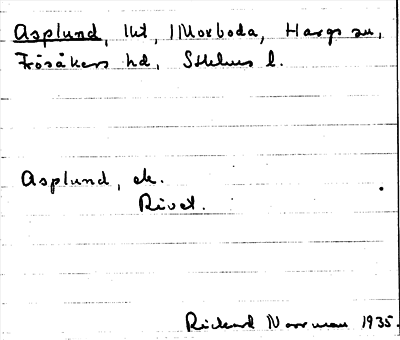 Asplund, lht, i Morboda, Hargs sn,
Frösåkers hd, Sthlms l.
Asplund, ek.
Rivet.
Rickard Norrman 1935.